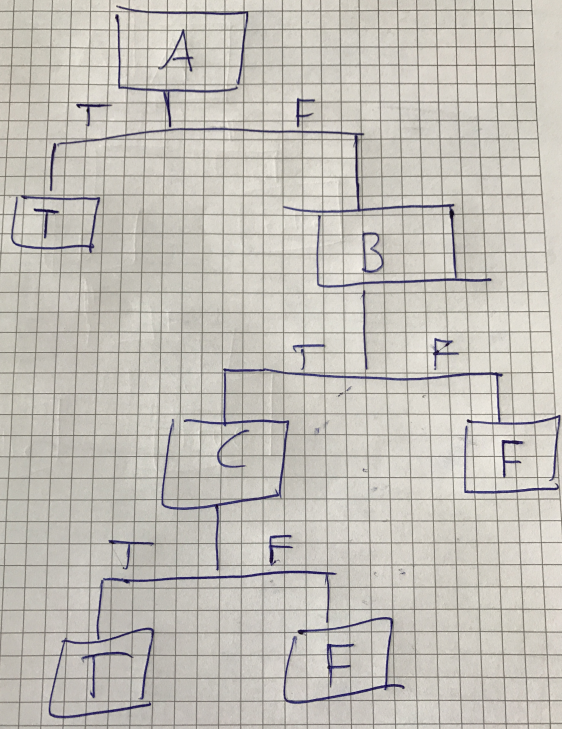 A
T F
T
B
T F
C
F
T F
T
F